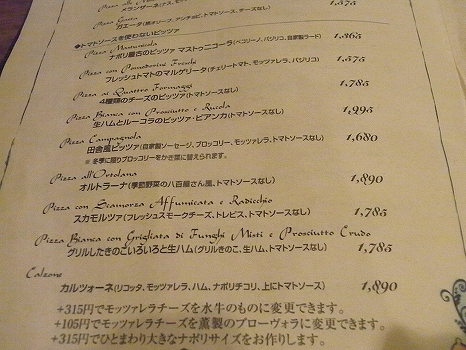 メランザーネ(ナス、モ 1,575
Pizza Gaeta
ガエータ(黒オリーヴ、アンチョビ、トマトソース、チーズなし) 1,575
◆トマトソースを使わないピッツァ
Pizza Mastunicola
ナポリ最古のピッツァ マストゥニコーラ(ペコリーノ、バジリコ、自家製ラード) 1,365
Pizza con Pomodorini Freschi
フレッシュトマトのマルゲリータ(チェリートマト、モッツァレラ、バジリコ) 1,575
Pizza ai Quattro Formaggi
4種類のチーズのピッツァ(トマトソースなし) 1,785
Pizza Bianca con Prosciutto e Rucola
生ハムとルーコラのピッツァ・ビアンカ(トマトソースなし) 1,995
Pizza Campagnola
田舎風ピッツァ(自家製ソーセージ、ブロッコリー、モッツァレラ、トマトソースなし) 1,680
※冬季に限りブロッコリーをかき菜に替えられます。
Pizza all'Ortolana
オルトラーナ(季節野菜の八百屋さん風、トマトソースなし) 1,890
Pizza con Scamorza Affumicata e Radicchio
スカモルツァ(フレッシュスモークチーズ、トレビス、トマトソースなし) 1,785
Pizza Bianca con Grigliata di Funghi Misti e Prosciutto Crudo
グリルしたきのこいろいろと生ハム(グリルきのこ、生ハム、トマトソースなし) 1,785
Calzone
カルツォーネ(リコッタ、モッツァレラ、ハム、ナポリチコリ、上にトマトソース) 1,890
+315円でモッツァレラチーズを水牛のものに変更できます。
+105円でモッツァレラチーズを薫製のプローヴォラに変更できます。
+315円でひとまわり大きなナポリサイズをお作りします。